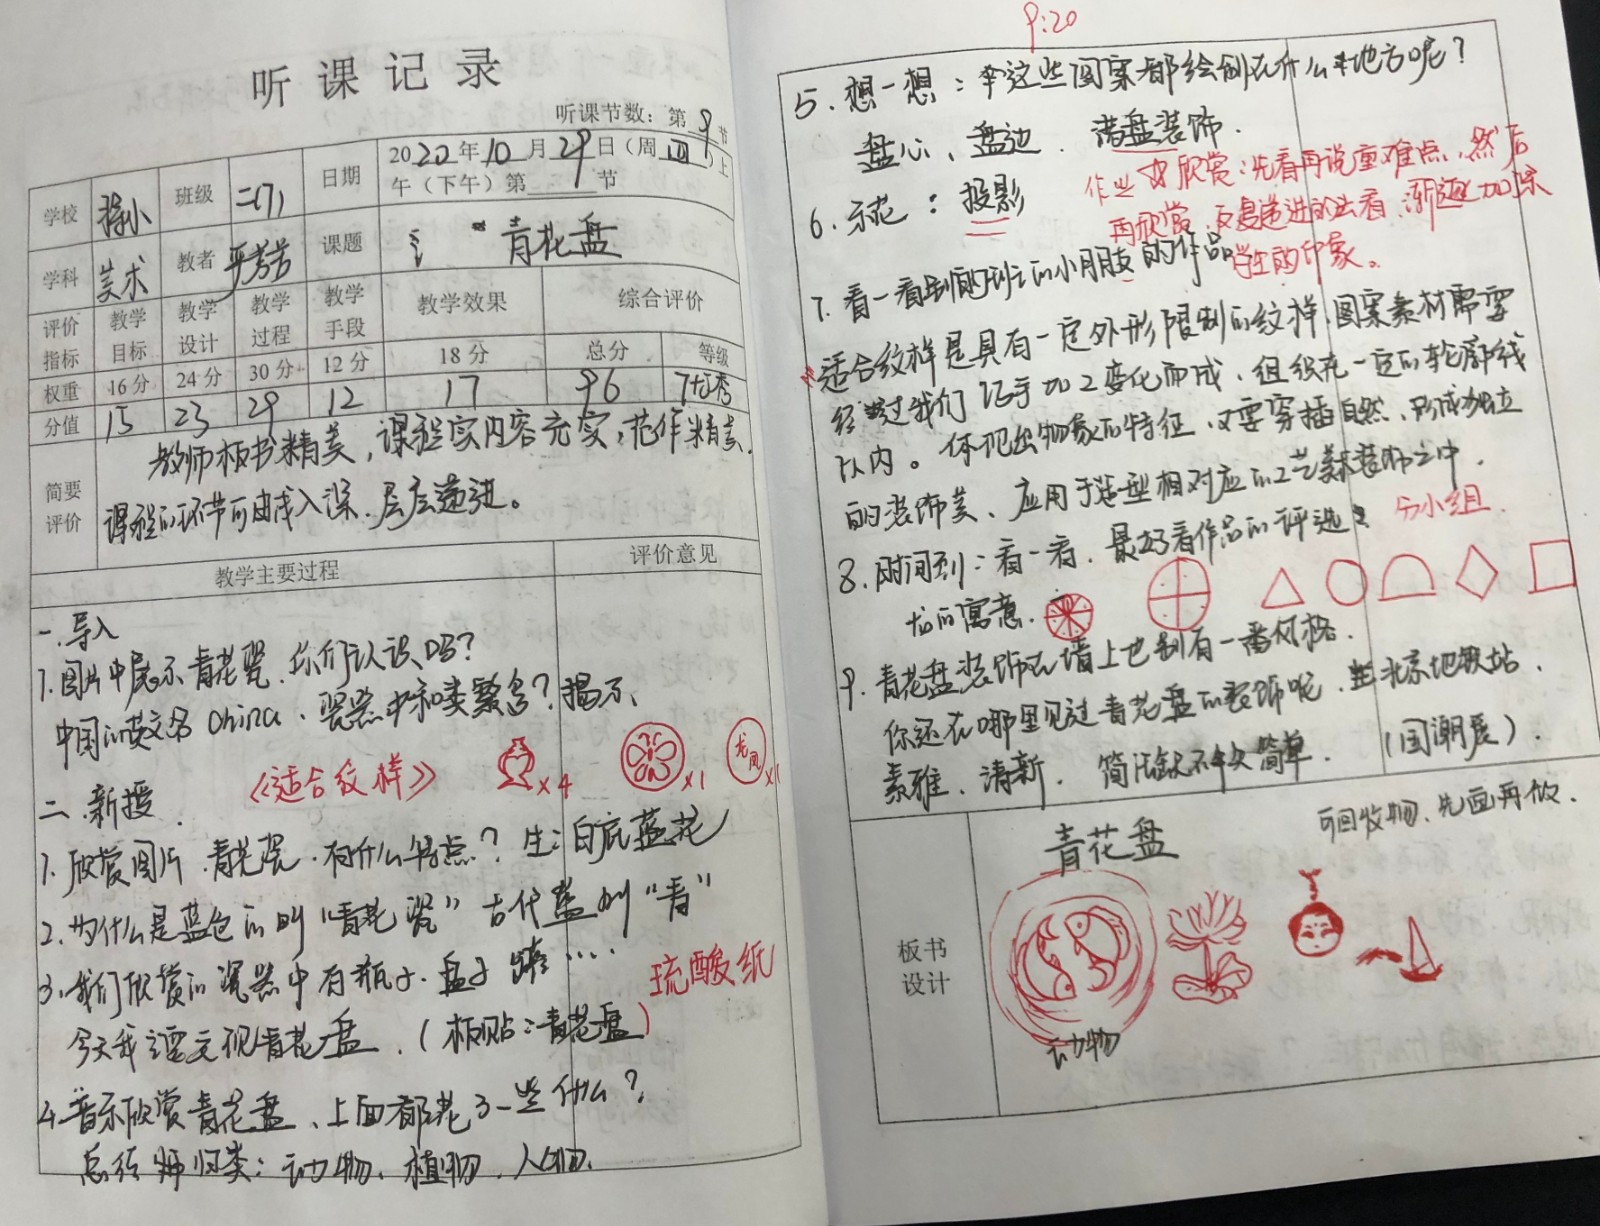 听课记录
听课节数：第 9 节
学校 班级 二(1) 日期 2020年10月29日（周四）上午（下午）第 节
学科 美术 教者 课题 青花盘
评价指标 教学目标 教学设计 教学过程 教学手段 教学效果 综合评价
权重 16分 24分 30分 12分 18分 总分 等级
分值 15 23 29 12 17 96 优秀
简要评价
教师板书精美，课程实内容充实，范作精美.
课程的环节可由浅入深.层层递进。
教学主要过程 评价意见
一.导入
1.图片中展示青花瓷.你们认识吗？
中国的英文名 China.瓷器中种类繁多？揭示
《适合纹样》 ×4 ×1 龙凤 ×1
二.新授.
1.欣赏图片.青花瓷.有什么特点？生：白底蓝花
2.为什么是蓝色的叫“青花瓷”古代蓝叫“青”
3.我们欣赏的瓷器中有瓶子.盘子 ……
琉酸纸
今天我 青花盘.（板贴：青花盘）
4.音乐欣赏青花盘、上面都画了一些什么？
总结 师归类：动物.植物.人物.
9:20
5.想一想：这些图案都绘制在什么地方呢？
盘心、盘边.满盘装饰.
作业 欣赏：先看再说重难点，然后
6.示范：投影
再欣赏.反复递进的去看.渐渐加深
学生的印象。
7.看一看别的班的小朋友的作品
*适合纹样是具有一定外形限制的纹样.图案素材需要
经过我们 加工变化而成.组织在一定的轮廓线
以内。体现出物象的特征.又要穿插自然.形成独立
的装饰美、应用于造型相对应的工艺美术装饰之中.
分小组.
8.时间到：看一看.最好看作品的评选
龙的寓意.
9.青花盘装饰在墙上也别有一番风格.
你还在哪里见过青花盘的装饰呢.北京地铁站.
素雅、清新.简洁 不失简单.（国潮展）.
可回收物、先画再做.
板书设计
青花盘
动物